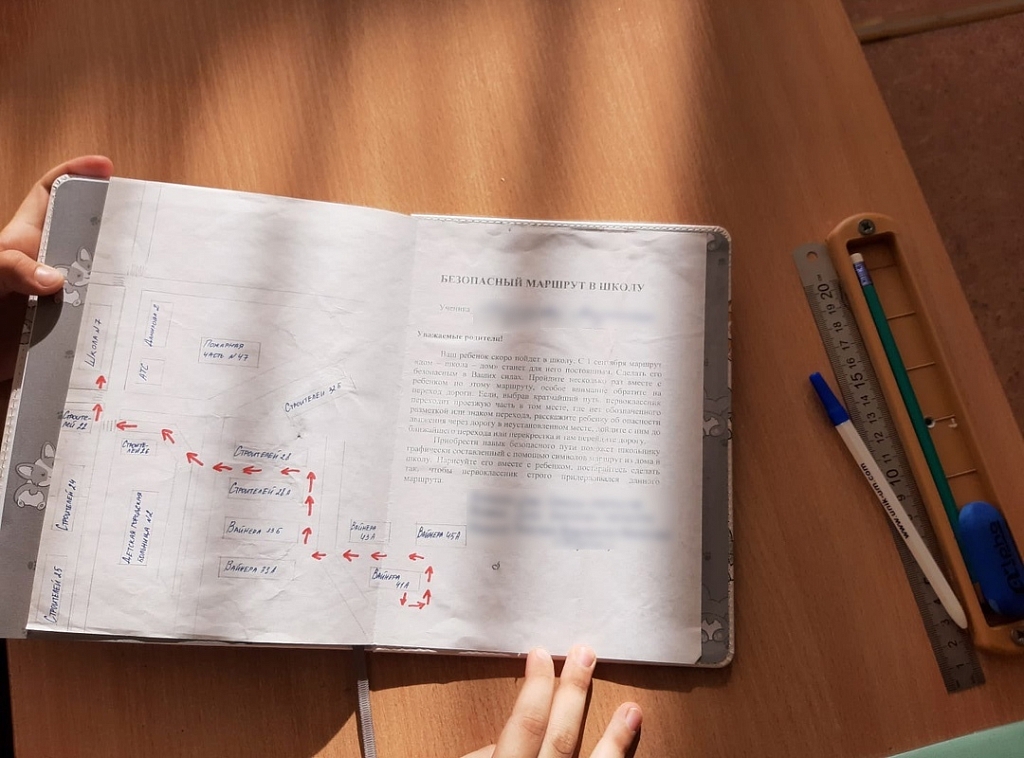 Школа №7
Данилова 2
АТС
Пожарная
часть №47
Строителей 32Б
Строите-
лей 22
Строите-
лей 26
Строителей 28
Строителей 28А
Строителей 24
Детская городская
больница №2
Строителей 25
Вайнера
43А
Вайнера 45А
Вайнера
41А
БЕЗОПАСНЫЙ МАРШРУТ В ШКОЛУ
Ученика
Уважаемые родители!
Ваш ребенок скоро пойдет в школу. С 1 сентября маршрут
«дом – школа – дом» станет для него постоянным. Сделать его
безопасным в Ваших силах. Пройдите несколько раз вместе с
ребенком по этому маршруту, особое внимание обратите на
переход дороги. Если, выбрав кратчайший путь, первоклассник
переходит проезжую часть в том месте, где нет обозначенного
разметкой или знаком перехода, расскажите ребенку об опасности
движения через дорогу в неустановленном месте, дойдите с ним до
ближайшего перехода или перекрестка и там перейдите дорогу.
Приобрести навык безопасного пути поможет школьнику
графически составленный с помощью символов маршрут из дома в
школу. Нарисуйте его вместе с ребенком, постарайтесь сделать
так, чтобы первоклассник строго придерживался данного
маршрута.
20 19 17 16 15 14 13 12 11 10 9 4 3 2 1
www.unik-um.com